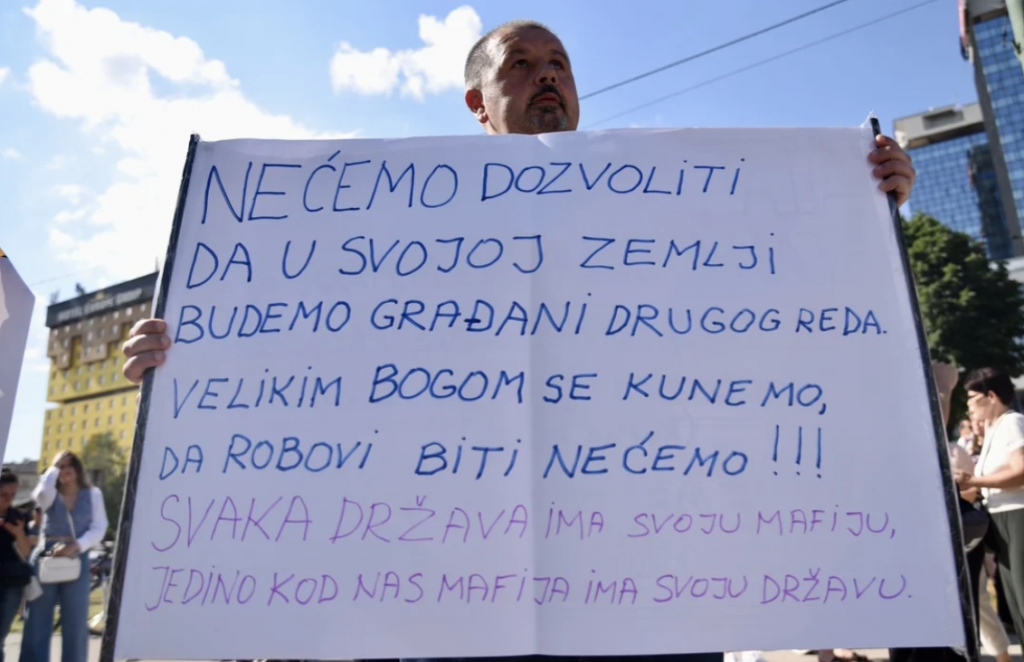 NEĆEMO DOZVOLITI
DA U SVOJOJ ZEMLJI
BUDEMO GRAĐANI DRUGOG REDA.
VELIKIM BOGOM SE KUNEMO,
DA ROBOVI BITI NEĆEMO !!!
SVAKA DRŽAVA IMA SVOJU MAFIJU,
JEDINO KOD NAS MAFIJA IMA SVOJU DRŽAVU.